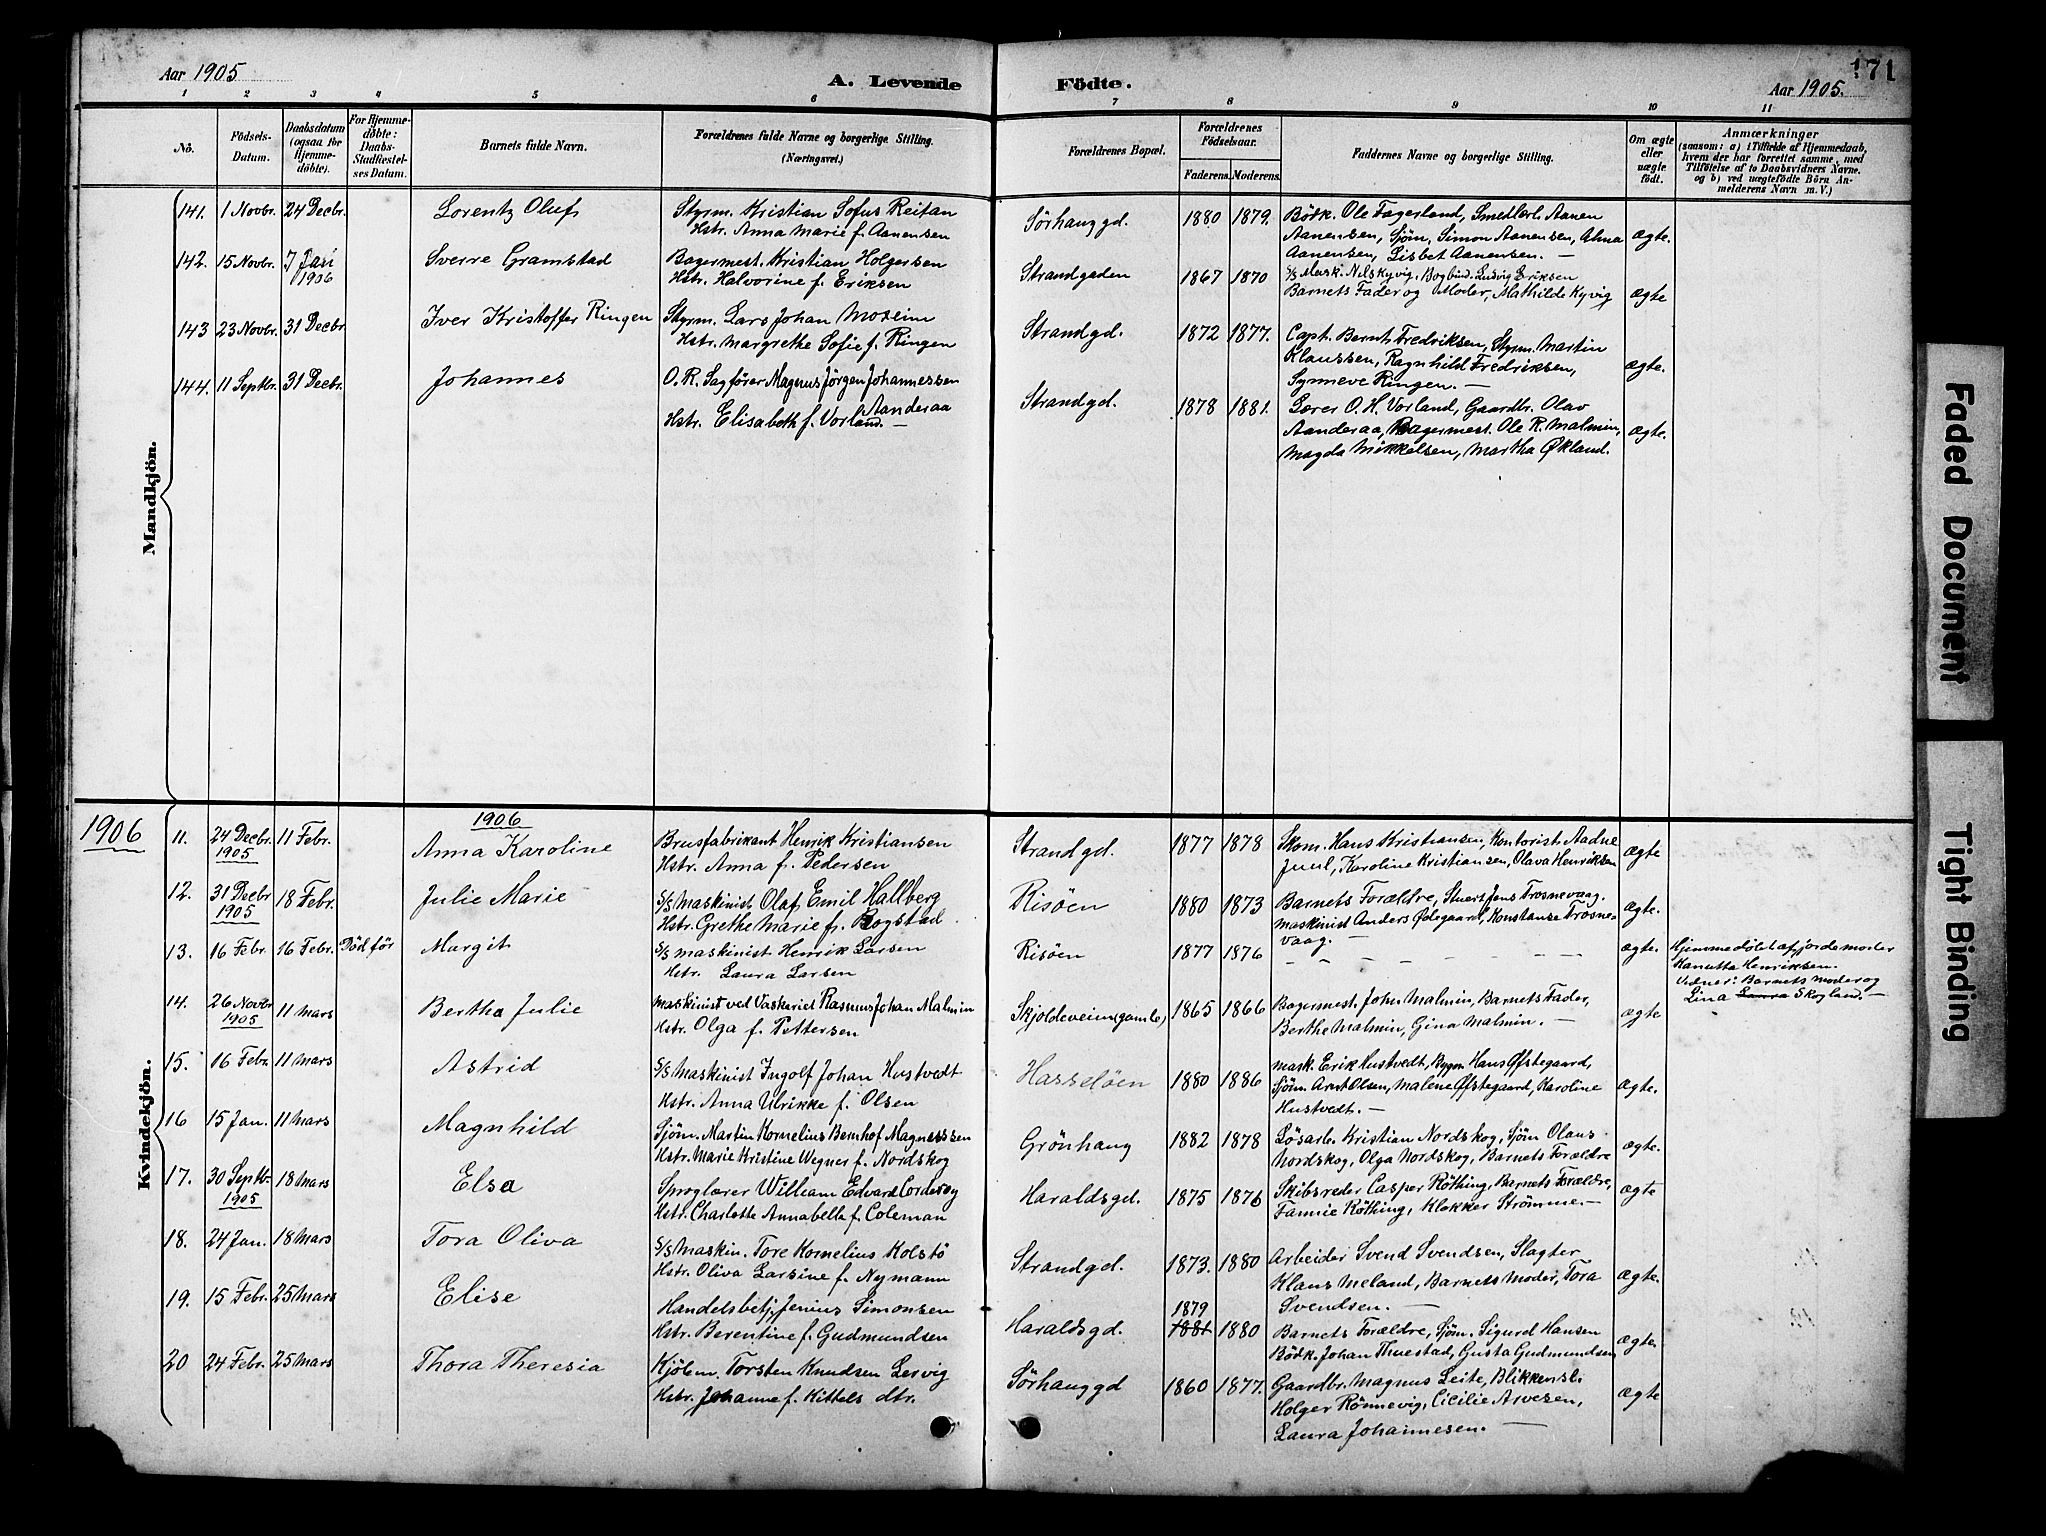 Aar 1905
A. Levende Födte.
Aar 1905.
171
1 2 3 4 5 6 7 8 9 10 11
Nö.
Födsels-Datum.
Daabsdatum (ogsaa for Hjemmedöbte).
For Hjemmedöbte: Daabs-Stadfæstelses Datum.
Barnets fulde Navn.
Forældrenes fulde Navne og borgerlige Stilling. (Næringsvei.)
Forældrenes Bopæl.
Forældrenes Födselsaar.
Faderens. Moderens.
Faddernes Navne og borgerlige Stilling.
Om ægte eller uægte födt.
Anmærkninger (saasom: a) i Tilfælde af Hjemmedaab, hvem der har forrettet samme, med Tilföielse af to Daabsvidners Navne, og b) ved uægtefödte Börn Anmelderens Navn m. V.)
Mandkjön.
141. 1 Novbr. 24 Decbr. Lorentz Oluf Styrm. Kristian Sofus Reitan Sørhauggd. 1880 1879. Bödk. Ole Fagerland, Smedlærl. Aanen
Hstr. Anna Marie f. Aanensen Aanensen, Sjöm. Simon Aanensen, Alma ægte.
Aanensen, Lisbet Aanensen. —
142. 15 Novbr. 7 Jari 1906 Sverre Gramstad Bagermest. Kristian Holgersen Strandgaden 1867 1870 S/S Mask. Nils Kyvig, Bogbind. Ludvig Eriksen
Hstr. Halvorine f. Eriksen Barnets Fader og Moder, Mathilde Kyvig ægte
143 23 Novbr. 31 Decbr Iver Kristoffer Ringen Styrm. Lars Johan Moseim Strandgd. 1872 1877. Capt. Bernt Fredriksen, Styrm. Martin
Hstr. Margrethe Sofie f. Ringen Klaussen, Ragnhild Fredriksen, ægte.
Synneve Ringen. —
144. 11 Septbr. 31 Decbr. Johannes O. R. Sagfører Magnus Jörgen Johannessen Aanderaa Strandgd. 1878 1881. Lærer O. H. Vorland, Gaardbr. Olav
Hstr. Elisabeth f. Vorland. — Aanderaa, Bagermest. Ole R. Malmin, ægte.
Magda Mikkelsen, Martha Økland.
1906
Kvindekjön.
1906
11. 24 Decbr. 1905 11 Febr. Anna Karoline Brusfabrikant Henrik Kristiansen Strandgd. 1877 1878 Skom. Hans Kristiansen, Kontorist Aadne
Hstr. Anna f. Pedersen Juul, Karoline Kristiansen, Olava Henriksen ægte
12. 31 Decbr 1905 18 Febr. Julie Marie S/S Maskinist Olaf Emil Hallberg Risöen 1880 1873 Barnets Forældre, Stuert Jens Trosnevaag.
Hstr. Grethe Marie f. Bogstad Maskinist Anders Ødegaard, Konstanse Trosnevaag. — ægte.
13. 16 Febr. 16 Febr. Död før Margit S/S Maskinist Henrik Larsen Risöen 1877 1876 — — — — — — ægte. Hjemmedøbt af jordemoder
Hstr. Laura Larsen Hanetta Henriksen.
Vidner: Barnets Moder og
Lina Laura Skogland. —
14. 26 Novbr 1905 11 Mars Bertha Julie Maskinist ved Vaskeriet Rasmus Johan Malmin Skjoldeveien (gamle) 1865 1866 Bagermest. John Malmin, Barnets Fader,
Hstr. Olga f. Pettersen Berthe Malmin, Gina Malmin. — ægte
15. 16 Febr. 11 Mars Astrid S/S Maskinist Ingolf Johan Hustvedt Hasselöen 1880 1886 Mask. Erik Hustvedt, Bygm Hans Øfstegaard,
Hstr. Anna Ulrikke f. Olsen Sjöm. Arnt Olsen, Malene Øfstegaard, Karoline ægte.
Hustvedt. —
16 15 Jan. 11 Mars Magnhild Sjöm. Martin Kornelius Bernhof Magnesssen Grönhaug 1882 1878 Løsarb. Kristian Nordskog, Sjöm Olaus
Hstr. Marie Kristine Wegner f. Nordskog Nordskog, Olga Nordskog, Barnets Forældre ægte.
17. 30 Septbr. 1905 18 Mars Elsa Sproglærer William Edvard Corderoy Haraldsgd. 1875 1876 Skibsreder Casper Röthing, Barnets Forældre,
Hstr. Charlotte Annabella f. Coleman Fannie Röthing, Klokker Strömme. — ægte
18. 24 Jan. 18 Mars Tora Oliva S/S Maskin. Tore Kornelius Kolstö Strandgd. 1873. 1880 Arbeider Svend Svendsen, Slagter
Hstr. Oliva Larsine f. Nymann Klaus Meland, Barnets Moder, Tora ægte.
Svendsen. —
19. 15 Febr. 25 Mars Elise Handelsbetj. Jenius Simonsen Haraldsgd. 1879 1881 1880 Barnets Forældre, Sjöm. Sigurd Hansen
Hstr. Berentine f. Gudmundsen Bödk. Johan Thuestad, Gusta Gudmundsen ægte
20 24 Febr. 25 Mars Thora Theresia Kjölem. Torsten Knudsen Lervig Sørhauggd 1860 1877. Gaardbr. Magnus Leite, Blikkensl.
Hstr. Johanne f. Kittels dtr. Holger Rönnevig, Cicilie Arvesen, ægte
Laura Johannesen. —
Faded Document
Tight Binding